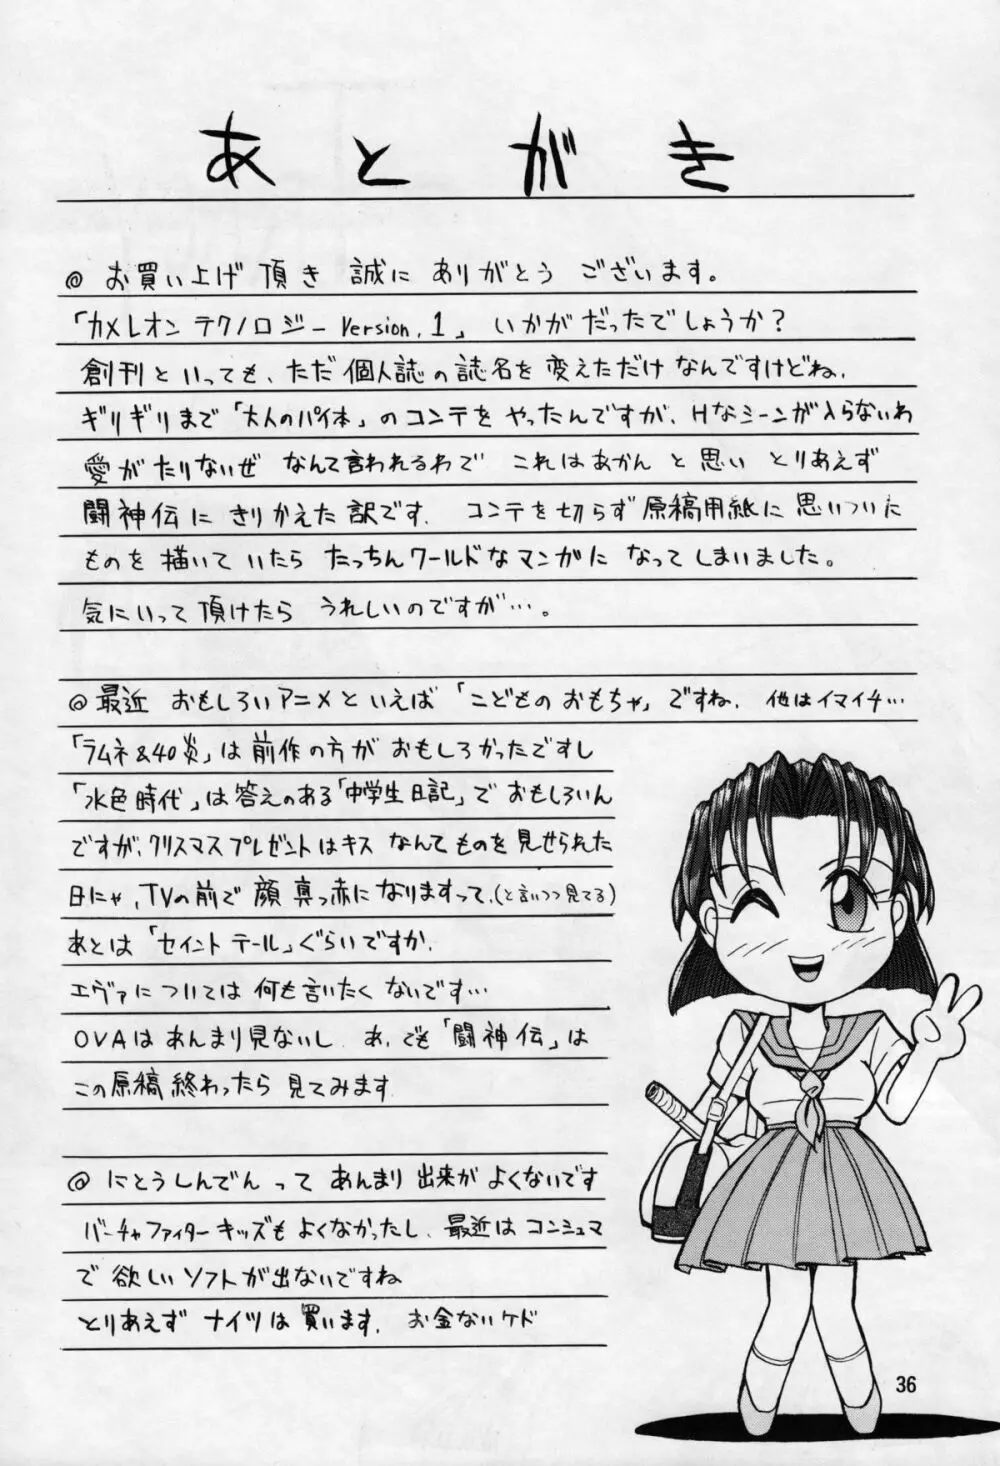 あとがき
@ お買い上げ 頂き 誠に ありがとう ございます。
「カメレオン テクノロジー version.1」 いかが だったでしょうか？
創刊と いっても、ただ 個人誌の 誌名を 変えただけ なんですけどね、
ギリギリまで 「大人のパイ本」 の コンテを やったんですが、Hなシーンが入らないわ
愛が たりないぜ なんて言われるわで これは あかん と 思い とりあえず
闘神伝に きりかえた 訳です． コンテを 切らず 原稿用紙に 思いついた
ものを 描いて いたら たっちんワールドな マンガに なって しまいました。
気にいって 頂けたら うれしいのですが…。
@ 最近 おもしろいアニメと いえば 「こどものおもちゃ」ですね． 他はイマイチ…
「ラムネ&40炎」は 前作の方が おもしろかったですし
「水色時代」は 答えのある「中学生日記」で おもしろいん
ですが、クリスマスプレゼントはキス なんて ものを 見せられた
日にゃ，TVの前で 顔 真っ赤になりますって．(と言いつつ見てる)
あとは 「セイント テール」ぐらいですか．
エヴァに ついては 何も 言いたく ないです…
OVAは あんまり見ないし． あ、でも 「闘神伝」は
この原稿 終わったら 見てみます．
@ にとうしんでん って あんまり 出来が よくないです
バーチャファイターキッズも よくなかったし． 最近は コンシュマ
で 欲しいソフトが 出ないですね
とりあえず ナイツは 買います． お金ないケド
36